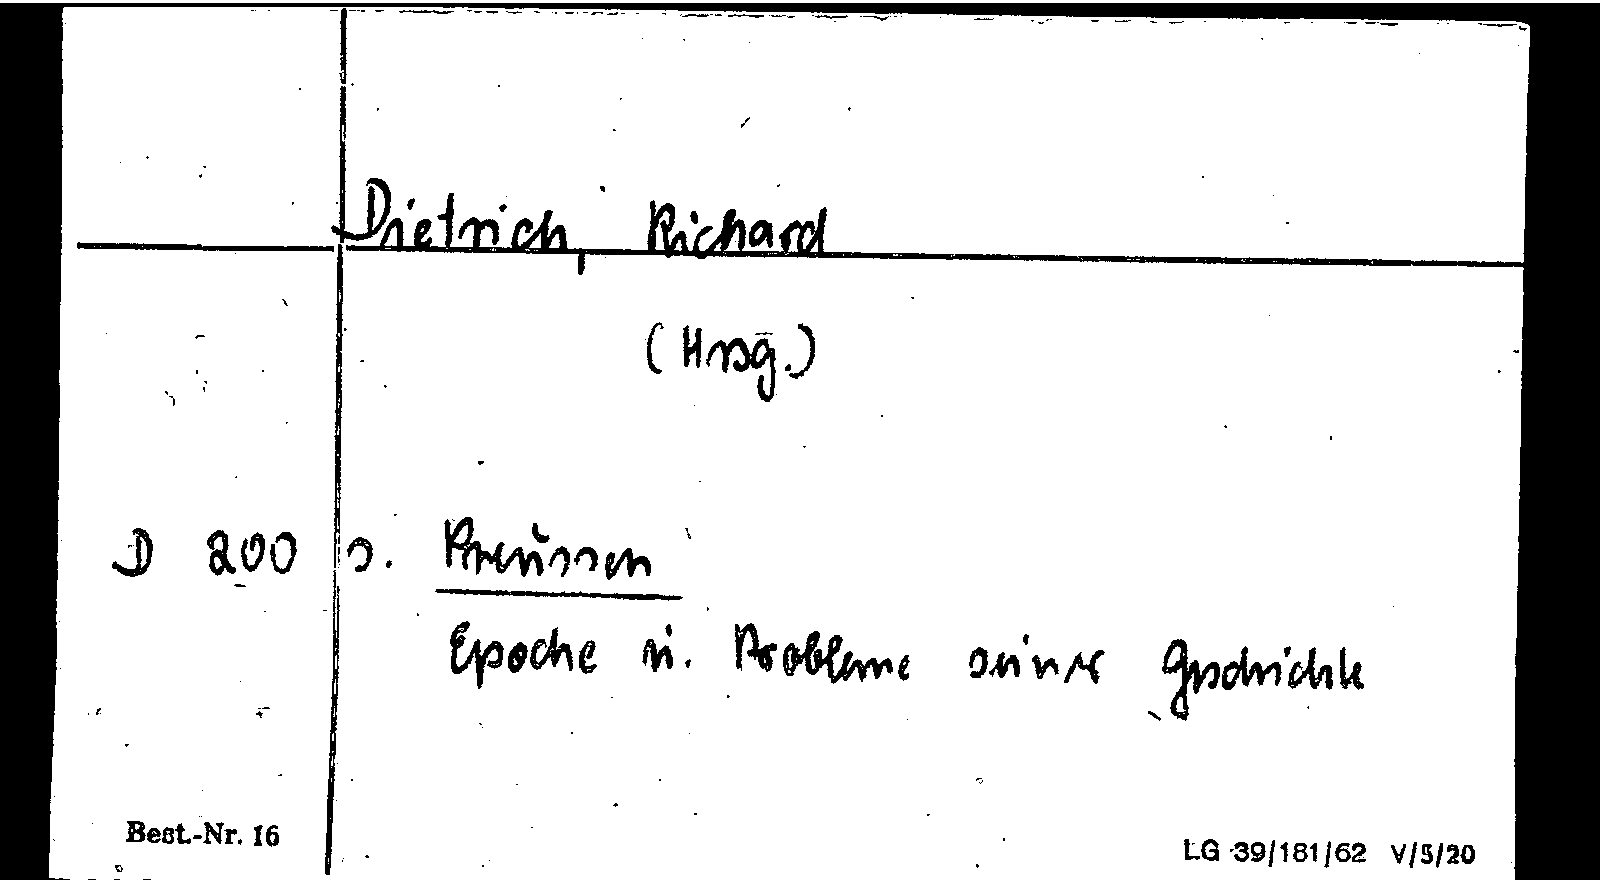 Dietrich, Richard
(Hrsg.)
D 200 s. Preussen
Epoche u. Probleme seiner Geschichte
Best.-Nr. 16
LG 39/181/62 V/5/20